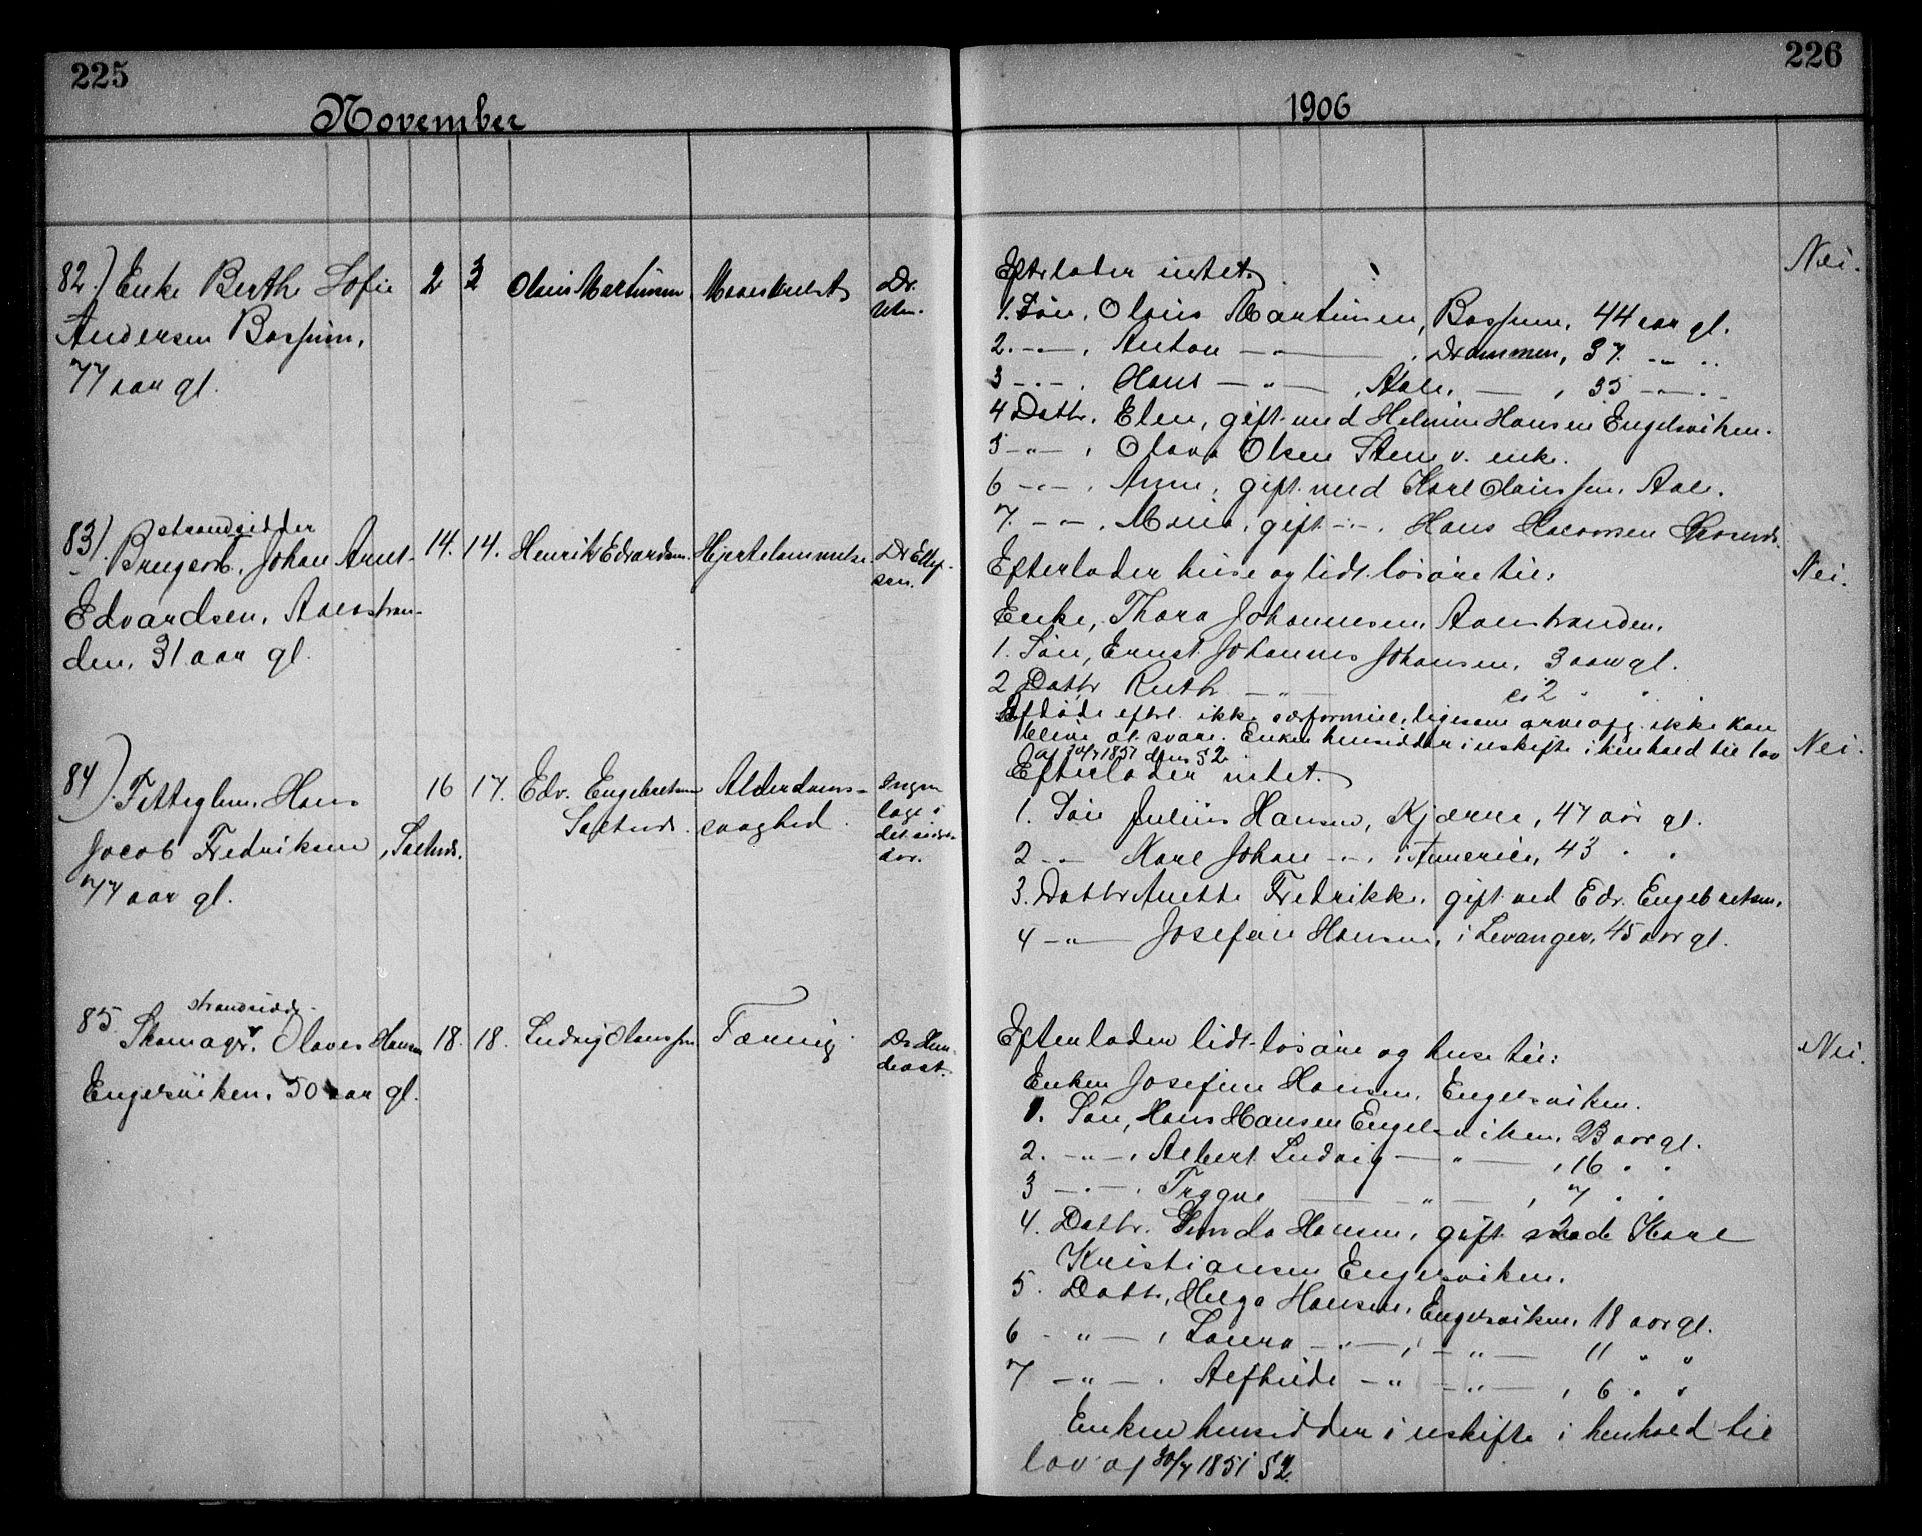 225
November
82.) Enke Berthe Sofie
Andersen Bossum,
77 aar gl.
2 3 Olaus Martinsen
Dr.
83). strandsidder
Brugsb. Johan Arnt
Edvardsen, Aalestran-
den, 31 aar gl.
14. 14. Henrik Edvardsen. Hjertelammelse.
Dr Ellef-
sen.
84). Fattiglem, Hans
Jacob Fredriksen, Saltnes.
77 aar gl.
16 17. Edv. Engebretsen
Saltnes.
Alderdoms-
svaghed.
Ingen
læge i
det sidste
aar.
85 strandsidd.
Skomagr. Olaves Hansen
Engelsviken. 50 aar gl.
18. 18. Ludvig Olaussen Tæring
Dr
226
1906
Efterlader intet.
Nei.
1. Søn, Olaus Martinsen, Bossum, 44 aar gl.
2. -"-, Anton -"- , Drammen, 37. -"- ..
3 -"-, Hans -"- , Aale, — , 35 -"- ..
4 Dattr. Elen, gift med Helmin Hansen Engelsviken.
5 -"-, Olava Olsen Stene v. enke.
6 -"-, Anne, gift med Karl Olaussen, Aale.
7. -"-, Maria, gift -"-. Hans
Efterlader huse og lidt løsøre til:
Nei.
Enke, Thora Johannesen, Aalestranden.
1. Søn, Ernst Johannes Johansen, 3 aar gl.
2 Dattr Ruth -"- ca 2 " "
Afdøde efterl. ikke særformue, ligesom arveafg. ikke kan
blive at svare. Enken hensidder i uskifte i henhold til lov
af 30/7 1851 dens § 2.
Nei.
Efterlader intet.
1. Søn Julius Hansen, Kjærre, 47 aar gl.
2 -"- Karl Johan -"-, i Amerika, 43 " "
3. Dattr Anette Fredrikke, gift med Edv. Engebretsen.
4 -"- Josefine Hansen, i Levanger, 45 aar gl.
Efterlader lidt løsøre og huse til:
Nei.
Enken Josefine Hansen, Engelsviken.
1. Søn, Hans Hansen Engelsviken, 23 aar gl.
2. -"-, Albert Ludvig -"- , 16 " "
3 -"-. Trygve -"- , 7 " "
4. Dattr. Gunda Hansen, gift med Karl
Kristiansen Engelsviken.
5. Dattr, Helga Hansen, Engelsviken, 18 aar gl.
6 -"-, Laura -"-, -"- 11 " "
7 -"-. Alfhilde -"- -"- , 6 " "
Enken hensidder i uskifte i henhold til
lov af 30/7 1851 § 2.